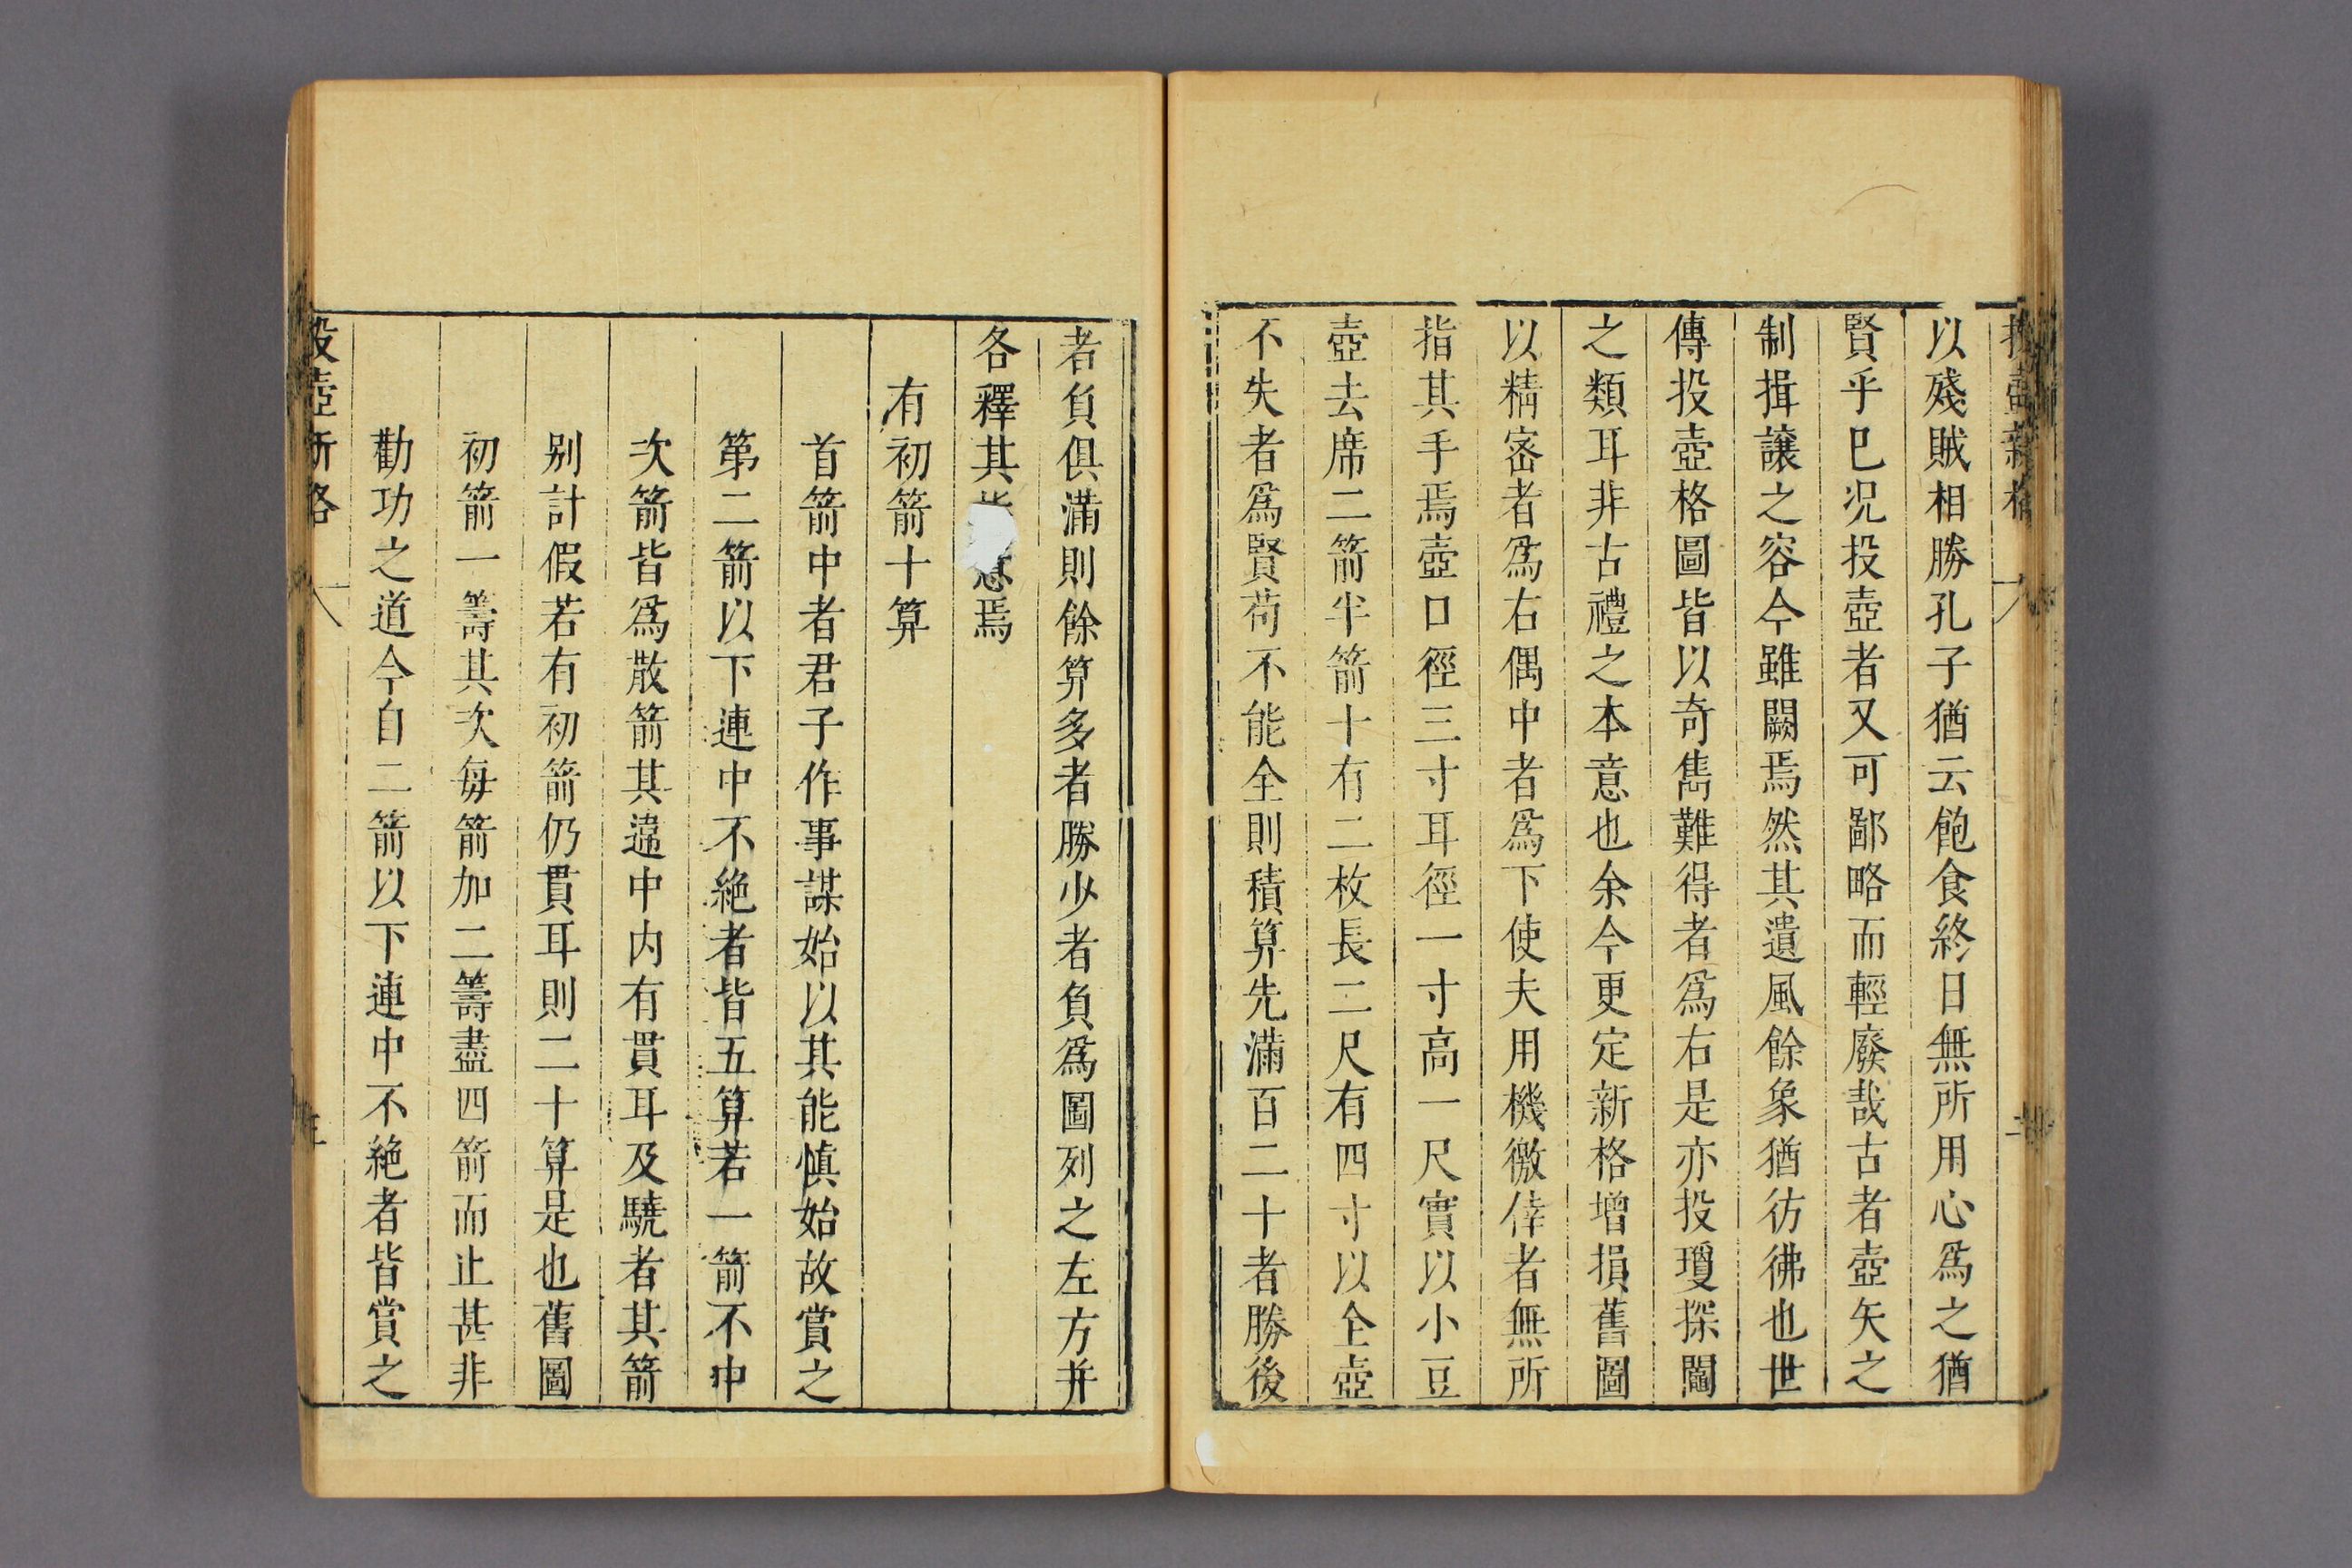 投壺新格
以殘賊相勝孔子猶云飽食終日無所用心爲之猶
賢乎巳况投壺者又可鄙略而輕廢哉古者壺矢之
制揖讓之容今雖闕焉然其遺風餘象猶彷彿也世
傳投壺格圖皆以奇雋難得者爲右是亦投瓊探鬮
之類耳非古禮之本意也余今更定新格增損舊圖
以精宻者爲右偶中者爲下使夫用機徼倖者無所
指其手焉壺口徑三寸耳徑一寸高一尺實以小豆
壺去席二箭半箭十有二枚長二尺有四寸以仝壺
不失者爲賢苟不能全則積算先滿百二十者勝後
者負俱滿則餘算多者勝少者負爲圖列之左方并
各釋其意焉
有初箭十算
首箭中者君子作事謀始以其能慎始故賞之
第二箭以下連中不絶者皆五算若一箭不中
次箭皆爲散箭其違中内有貫耳及驍者其箭
别計假若有初箭仍貫耳則二十算是也舊圖
初箭一籌其次每箭加二籌盡四箭而止甚非
勸功之道今自二箭以下連中不絶者皆賞之
投壺新格